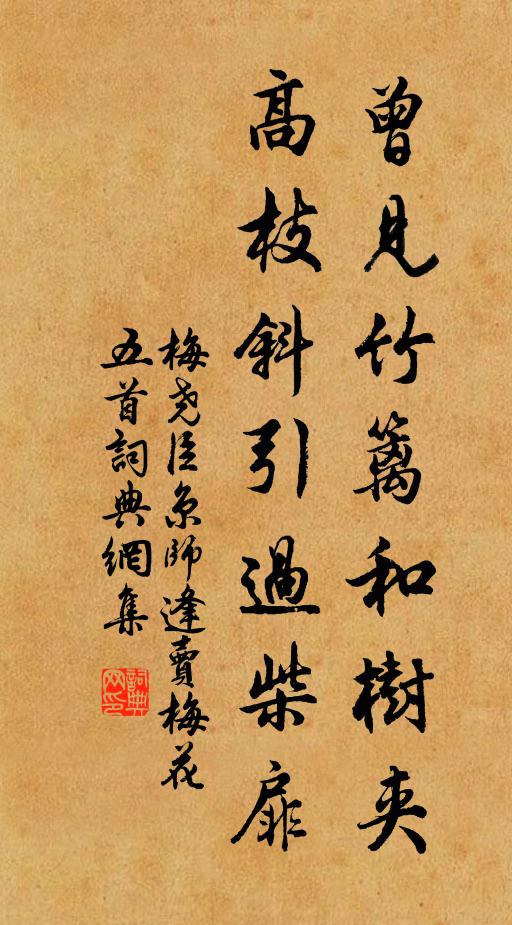 曾見竹籬和樹夾
高枝斜引過柴扉
梅堯臣京師逢賣梅花
五首詞典網集
詞典網印